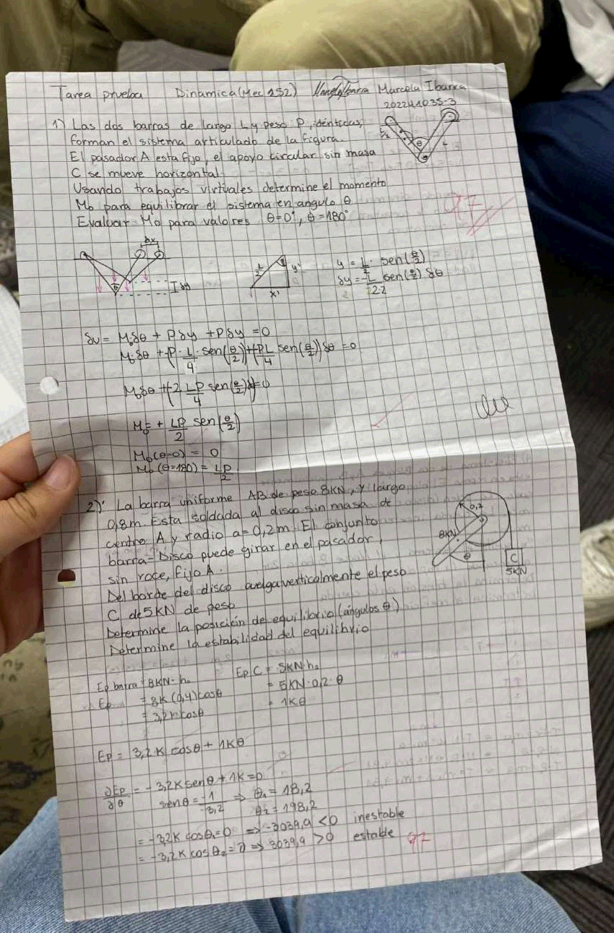 Tarea prueba Dinamica (Mec 152) Marcela Ibarra
202241035-3
1) Las dos barras de largo L y peso P, idénticas,
forman el sistema articulado de la figura.
El pasador A esta fijo, el apoyo circular sin masa
C se mueve horizontal
Usando trabajos virtuales determine el momento
Mo para equilibrar el sistema en angulo θ
Evaluar Mo para valores θ=0°, θ=180°
y = L/2 · sen(θ/2)
δy = -L/2·2 sen(θ/2) δθ
δu = Mδθ + Pδy + Pδy = 0
Moδθ + (P·L/4 · sen(θ/2)) + (PL/4 sen(θ/2)) δθ = 0
Moδθ + (2 LP/4 sen(θ/2)) = 0
Mo = + LP/2 sen(θ/2)
Mo(θ=0) = 0
Mo(θ=180) = LP/2
2) La barra uniforme AB de peso 8KN, y largo
0,8m. Esta soldada al disco sin masa de
centro A y radio a=0,2m. El conjunto
barra-Disco puede girar en el pasador
sin roce, fijo A.
Del borde del disco cuelga verticalmente el peso
C de 5KN de peso
Determine la posición de equilibrio (ángulos θ)
Determine la estabilidad del equilibrio
0,2
8KN
θ
C
5KN
Ep barra = 8KN·h₁ Ep C = 5KN·h₂
Ep = 8K(0,4)cosθ = 5KN·0,2·θ
= 3,2K cosθ = 1Kθ
Ep = 3,2K cosθ + 1Kθ
∂Ep/∂θ = -3,2K senθ + 1K = 0
senθ = -1/-3,2 ⇒ θ₁ = 18,2
θ₂ = 198,2
= -3,2K cosθ₁ = 0 ⇒ -3039,9 < 0 inestable
= -3,2K cosθ₂ = 0 ⇒ 3039,9 > 0 estable